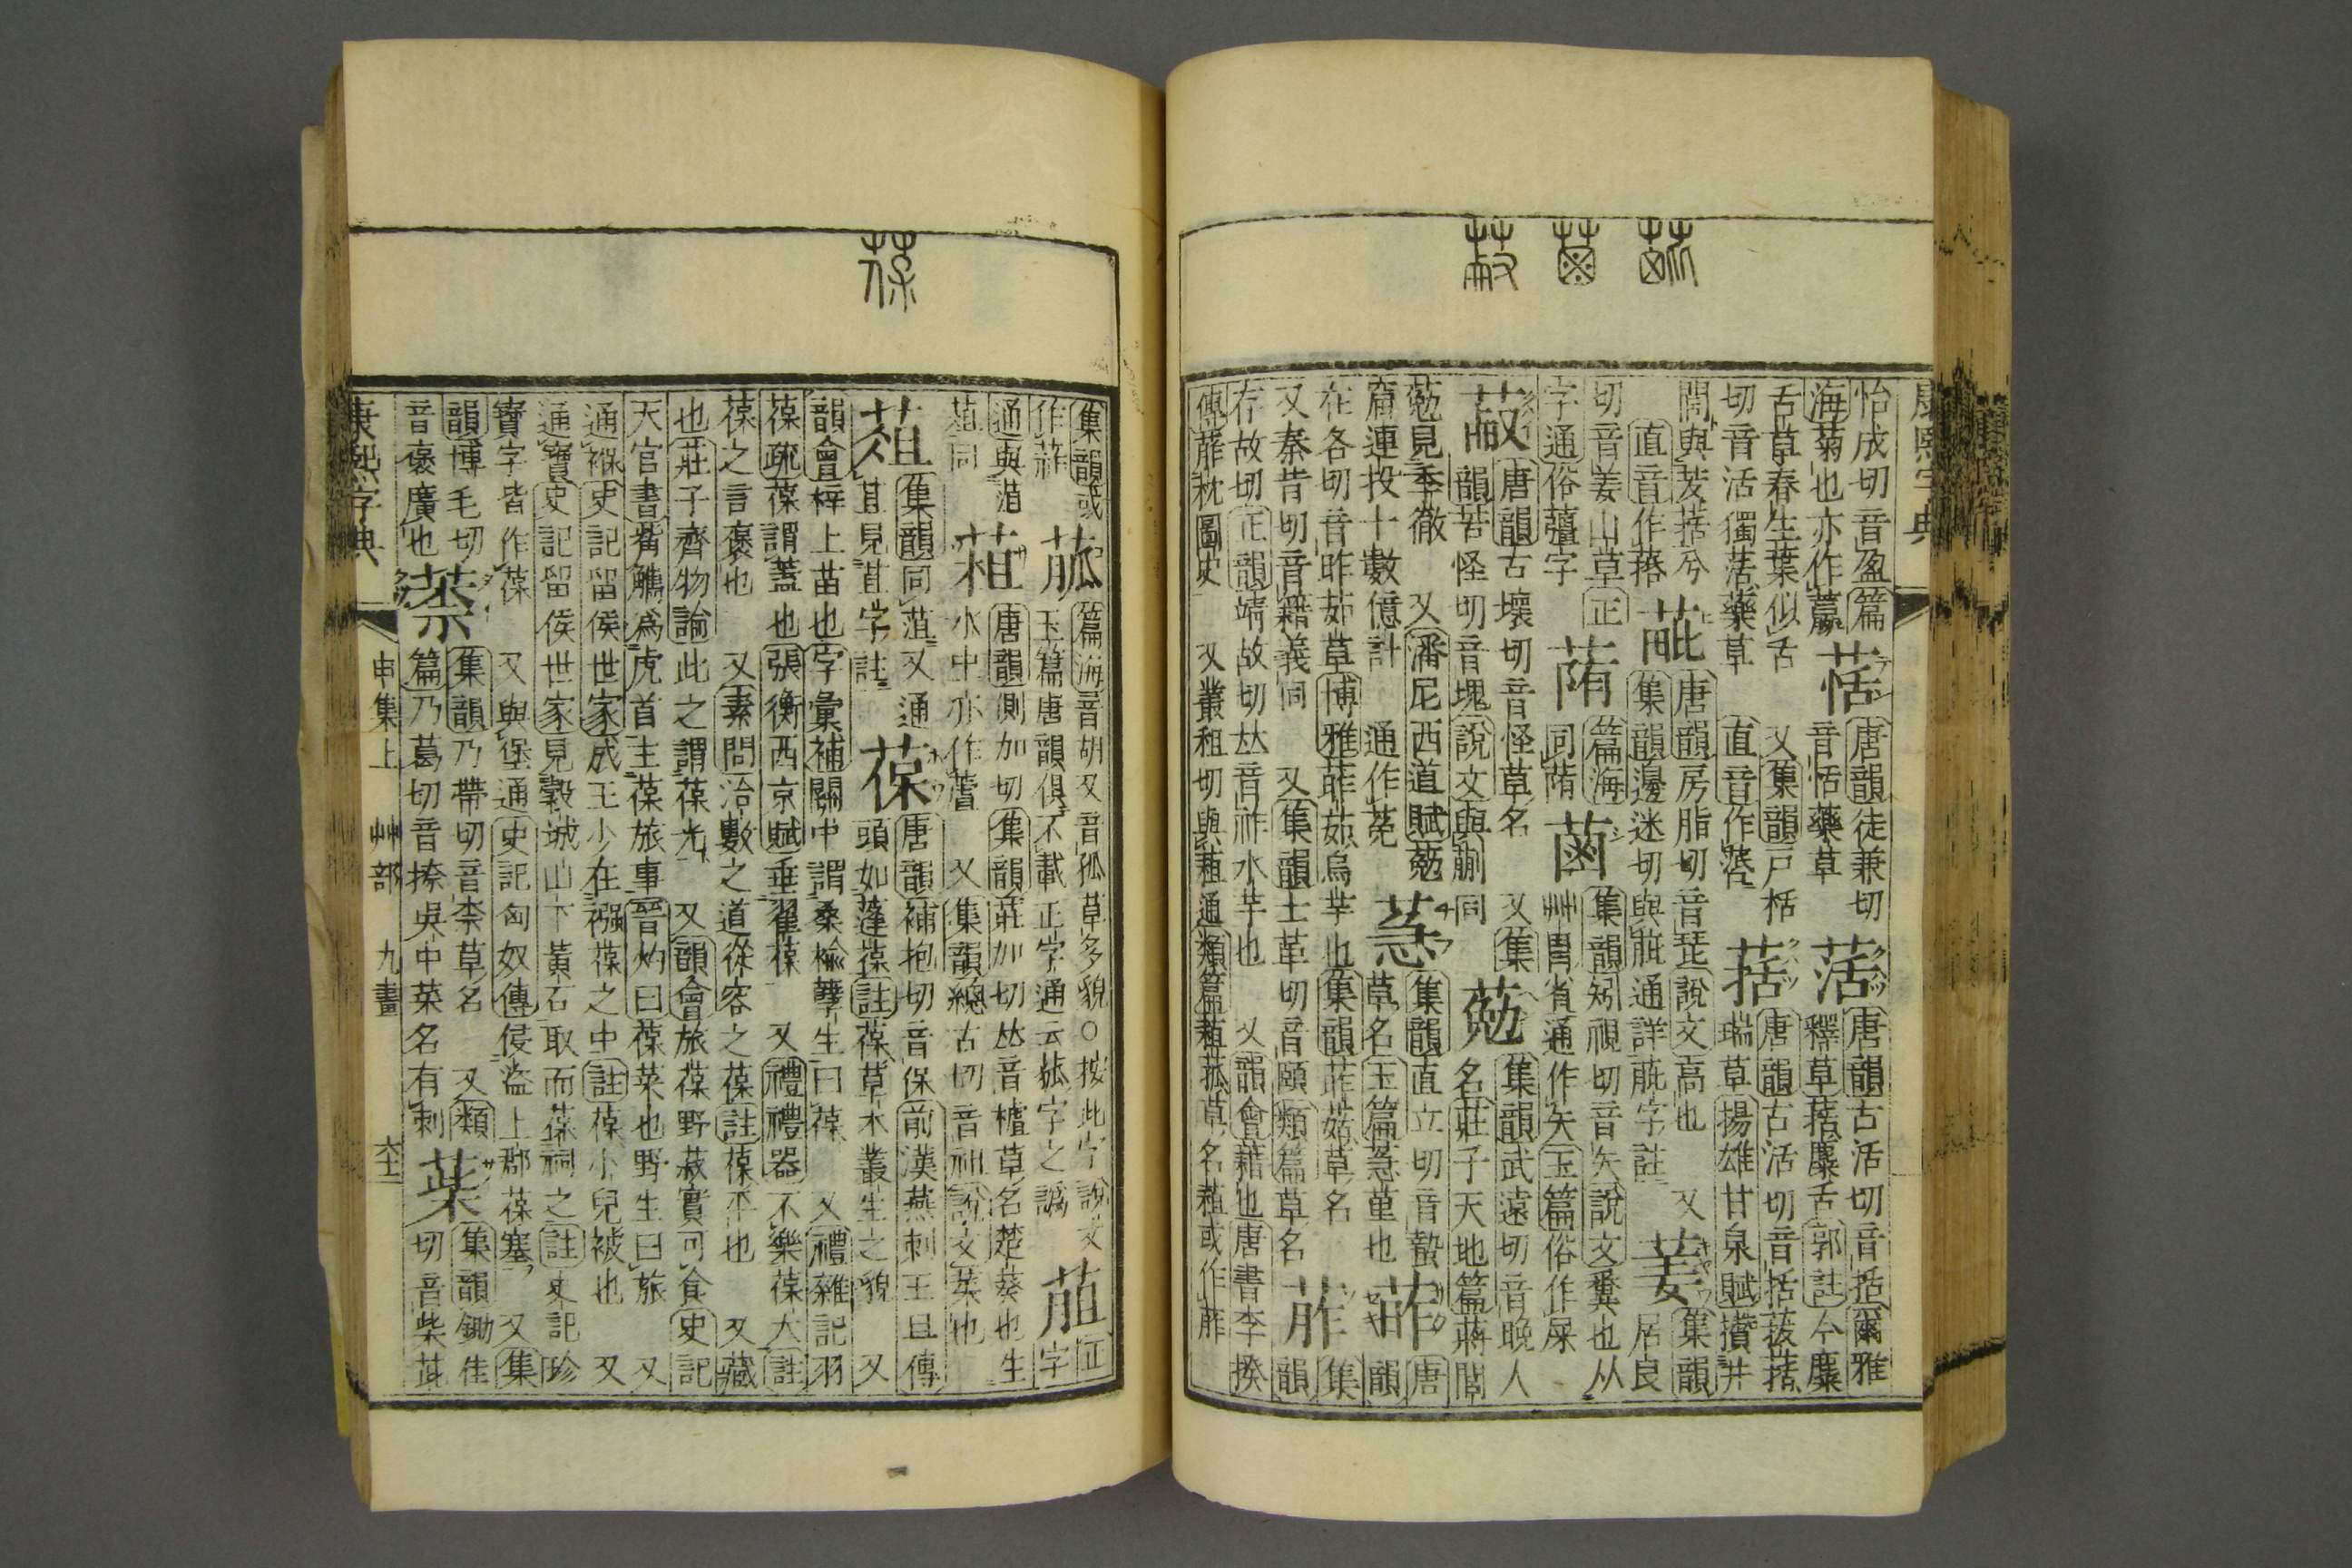 怡成切音盈篇
海菊也亦作蘦
萿
唐韻徒兼切
音恬藥草
萿
唐韻古活切音括爾雅
釋草葀麋舌郭註今麋
舌草春生葉似舌
又集韻戸栝
切音活獨萿藥草
直音作蓌
葀
唐韻古活切音括菝葀
瑞草揚雄甘泉賦攢井
閭與茇葀兮
直音作蕵
萞
唐韻房脂切音琵說文蒿也
集韻邊迷切與蓖通詳蓖字註
又
葁
集韻居良
切音姜山草
正字通俗薑字
蓨
篇海同蓨
菡
集韻矧視切音矢說文糞也从
艸胃省通作矢玉篇俗作屎
蔽
唐韻古壞切音怪草名
又集韻苦怪切音塊說文與蒯同
葂
集韻武遠切音晚人
名莊子天地篇蔣閭
葂見季徹
又潘尼西道賦葂
窟連投十數億計
通作莬
蒠
集韻直立切音蟄
草名玉篇蒠菫也
葃
唐韻
在各切音昨茹草博雅葃菇烏芋也集韻葃菇草名
葄
集韻
又秦昔切音籍義同
又集韻士革切音賾類篇草名
存故切正韻靖故切𠀤音祚水芋也
又韻會藉也唐書李揆
傳葄枕圖史
又叢租切與蒩通類篇蒩菰草名蒩或作葄
集韻或
作蒢
菰
篇海音胡又音孤草多貌○按此字說文
玉篇唐韻俱不載正字通云菰字之譌
葅
正字
通與菹
同
葙
唐韻側加切集韻莊加切𠀤音樝草名楚葵也生
水中亦作䕢
又集韻總古切音祖說文菜也
葅
集韻同菹
又通
苴見苴字註
葆
唐韻補抱切音保前漢燕刺王旦傳
頭如蓬葆註葆草木叢生之貌
又
韻會梓上苗也字彙補關中謂桑榆孽生曰葆
又禮雜記羽
葆疏葆謂蓋也張衡西京賦垂翟葆
又禮禮器不樂葆大註
葆之言褒也
又素問治數之道從容之葆註葆平也
又藏
也莊子齊物論此之謂葆光
又韻會旅葆野菽實可食史記
天官書觜觿爲虎首主葆旅事晉灼曰葆菜也野生曰旅
又
通褓史記留侯世家成王少在襁葆之中註葆小兒被也
又
通寶史記留侯世家見穀城山下黃石取而葆祠之註史記珍
寶字皆作葆
又與堡通史記匈奴傳侵盜上郡葆塞
又集
韻博毛切音褒廣也
蒅
集韻乃帶切音柰草名
又類
篇乃葛切音捺吳中菜名有刺
葇
集韻鋤佳
切音柴茈
康熙字典
申集上
艸部
九畫